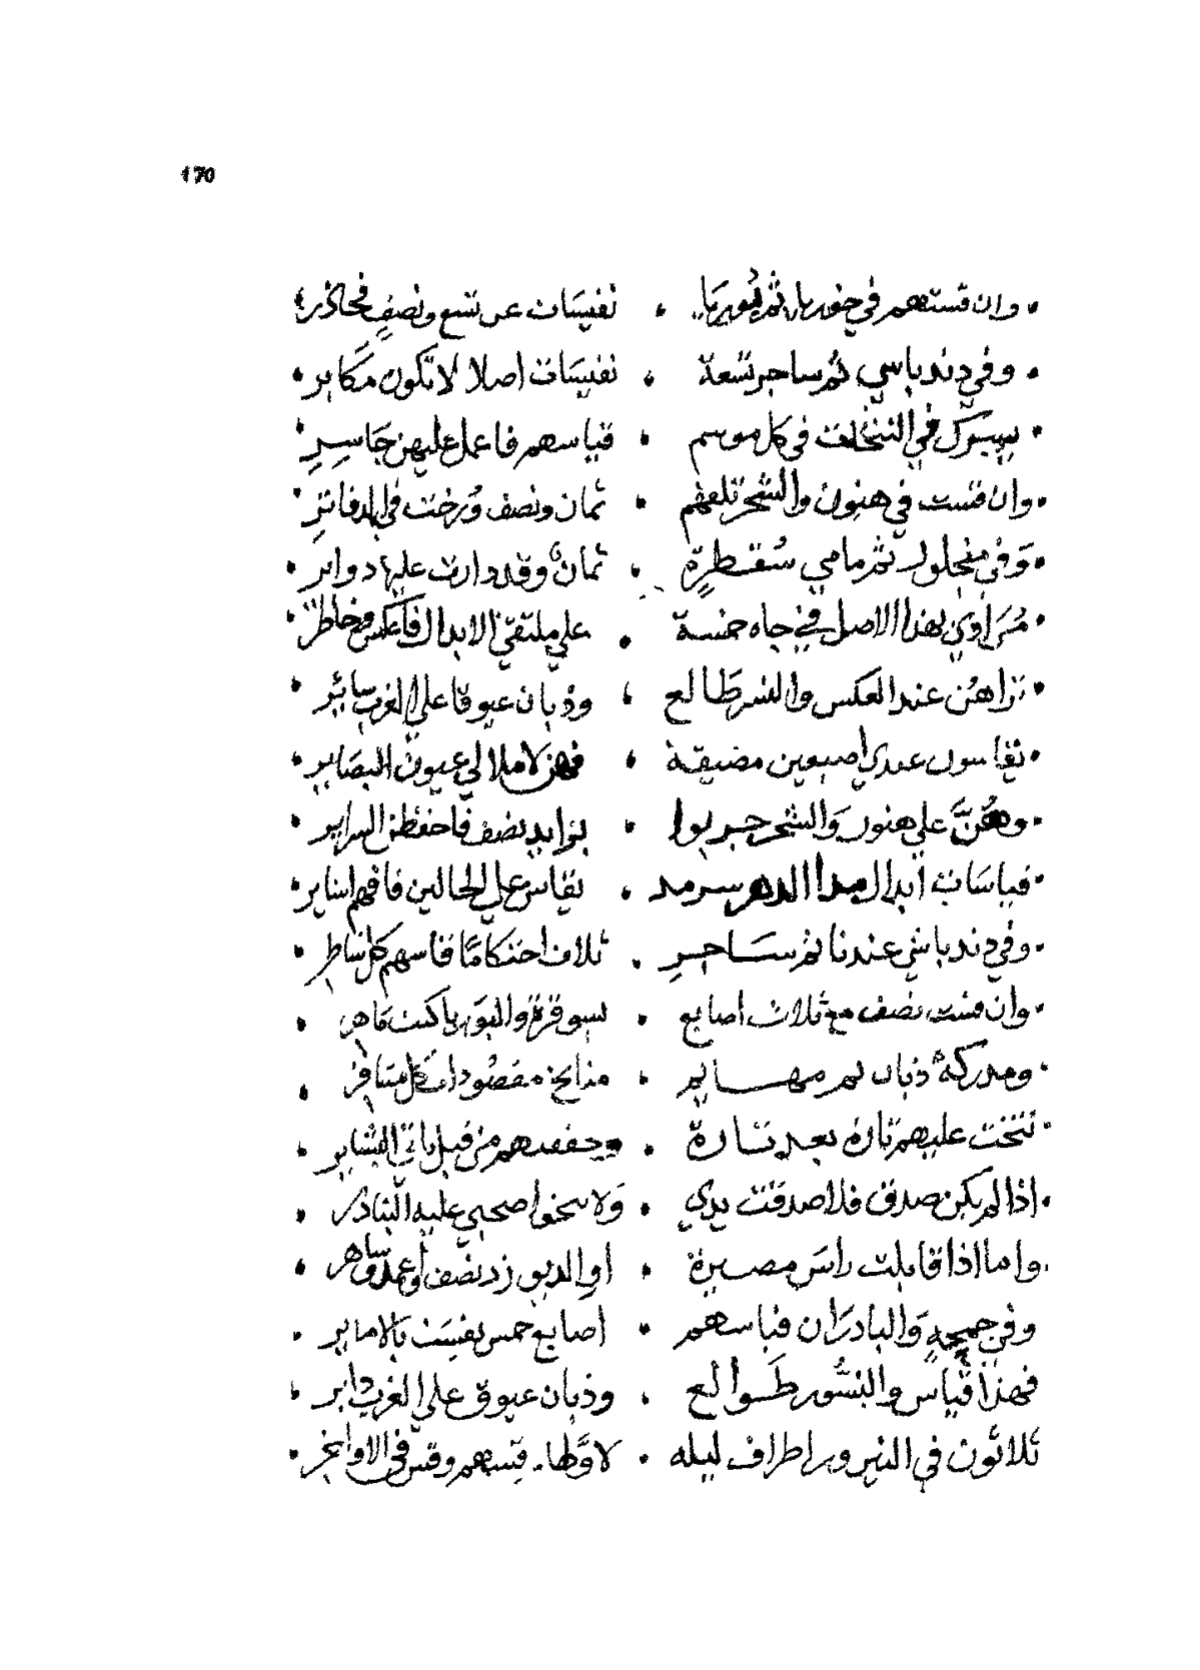 170
وان قستهم في جوزرات ثم نُوريَا • نفيسَات عن تسع ونصفٍ فحاذر
وفي دندباسي ثم ساجر تسعة • نفيسَات اصلا لا تكون مكابر
في كل موسم • قياسهم فاعمل عليهن جَاسِرِ
وان قست في هنون والشحر تلقهم • ثمان ونصف وُرخت في الدفاترِ
وَفي منجلور ثم مامي سُقطرةٍ • ثمانٌ وقد دارت عليها دواير
مُرَاوي بهذا الاصل في جاه خمسة • علي ملتقي الابدال فاعكس وخاطر
تراهن عند العكس والنسر طَالع • وذبان عيوقا علي الغرب سائر
تقاسون عندي اصبعين مضيقة • فهن لاملا لي عيون البصَاير
وهُنَّ علي هنور وَالشحر جربوا • بزايد نصف فاحفظن السراير
قياسَات ابدال مدا الدهر سرمد • تقاس علي الحالين فافهم اشاير
وفي دندباشي عندنا ثم سَاجِرِ • ثلاث احتكامًا قاسهم كل شاطرِ
وان قست نصف مع ثلاث اصابع • بسوقرة والبَور يا كنت ماهر
ومدركة ذبان ثم مهايم • منايخ مقصودات كل مسافر
نتخت عليهم تارة بعد تارة • وحققتهم من قبل ياتي البشاير
اذا لم يكن صدق فلا صدقت يدي • وَلا سخوا صحبي عليه النادر
واما اذا قابلت راسَ مصيرة • او الديو زد نصف وعمد وساهر
وفي جميحه وَالبادرَان قياسهم • اصابع خمس نفيسَت بالامايرِ
فهذا قياس والنسُّور طَوالع • وذبان عيوق علي الغرب دابر
ثلاثون في النيروز اطراف ليله • لاوَّلها. قسهم وقس في الاواخر